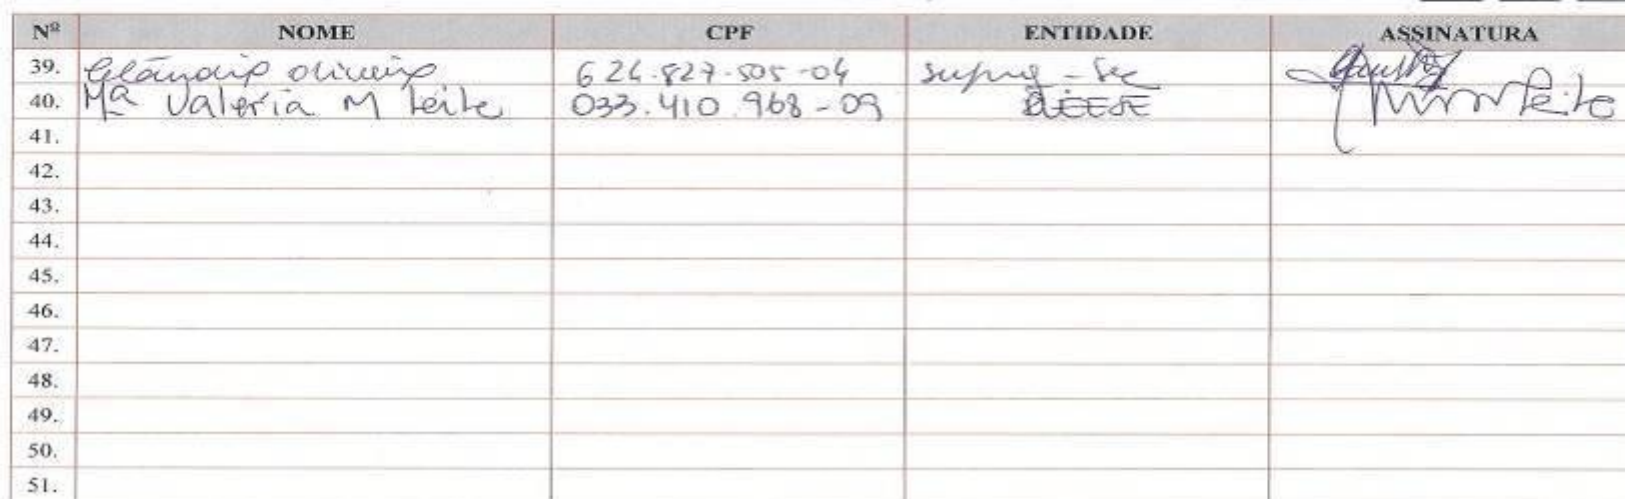 Nº NOME CPF ENTIDADE ASSINATURA
39. Oliveira 624.827.505-04
40. Mª Valeria M Leite 033.410.968-09 DIEESE
41.
42.
43.
44.
45.
46.
47.
48.
49.
50.
51.